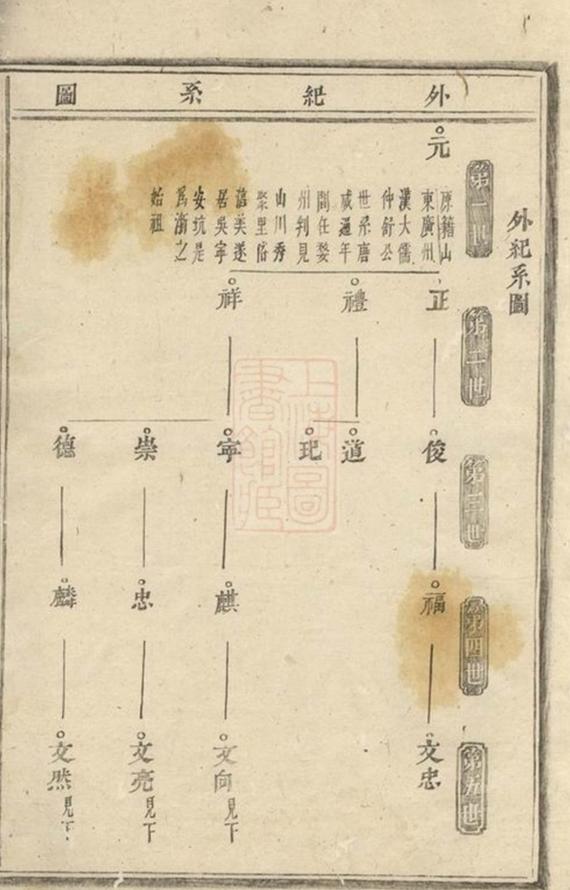 外紀系圖
外紀系圖
第一世
元
原籍山
東廣州
漢大儒
仲舒公
世系唐
咸通年
間任婺
州判見
山川秀
聚里俗
舊美遂
居吳寧
安坑是
爲渐之
始祖
第二世
正
禮
祥
第三世
俊
道
玘
寧
崇
德
第四世
福
麒
忠
麟
第五世
文忠
文向見下
文亮見下
文然見下
上海圖書館藏